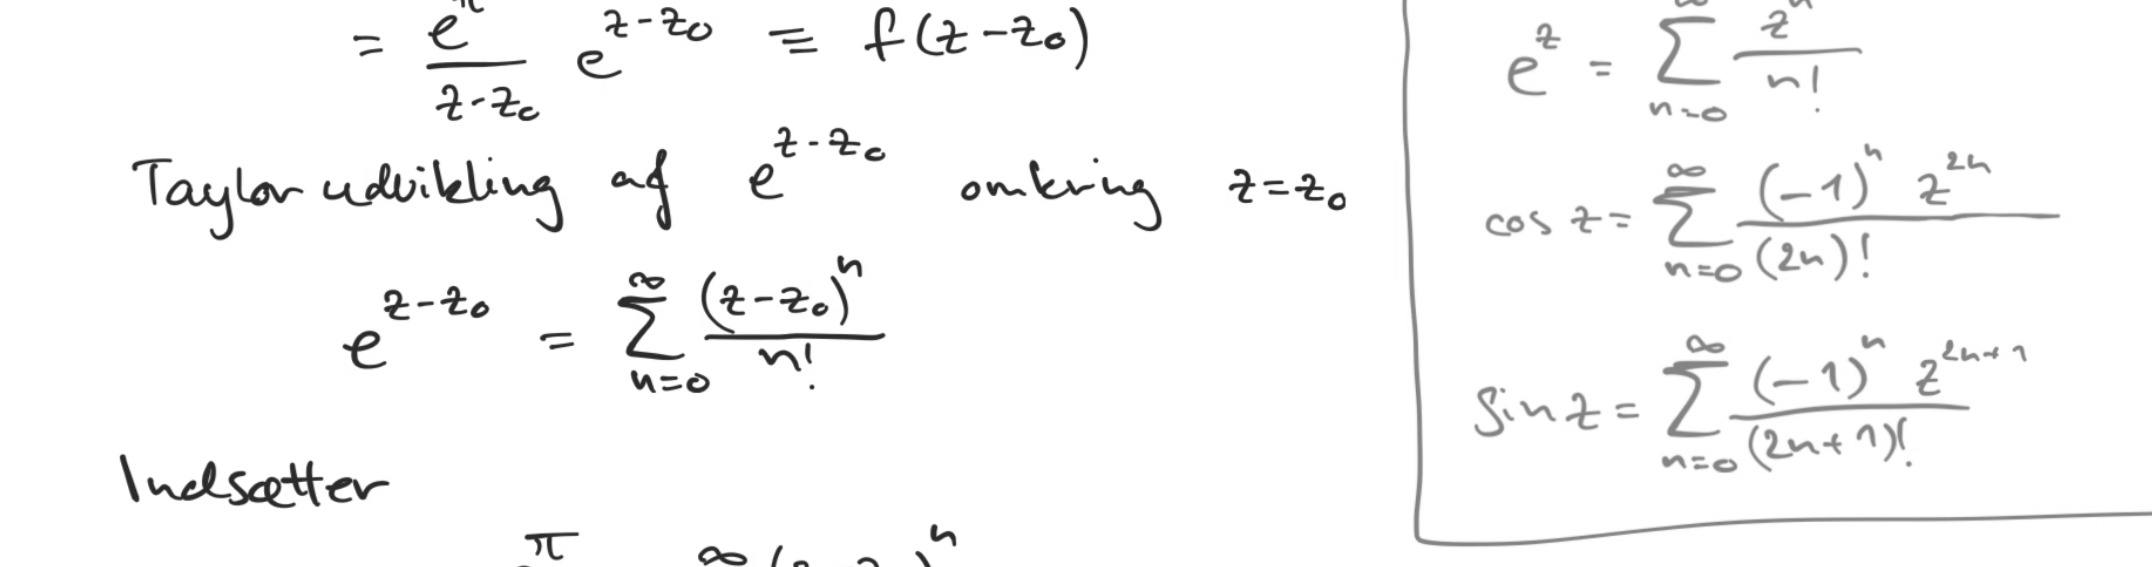 = e^π/(z-z₀) e^(z-z₀) = f(z-z₀)
Taylor udvikling af e^(z-z₀) omkring z=z₀
e^(z-z₀) = ∑_(n=0)^∞ (z-z₀)^n/n!
Indsætter
π ∞ (z-z )^n
e^z = ∑_(n=0)^∞ z^n/n!
cos z = ∑_(n=0)^∞ (-1)^n z^(2n)/(2n)!
sin z = ∑_(n=0)^∞ (-1)^n z^(2n+1)/(2n+1)!